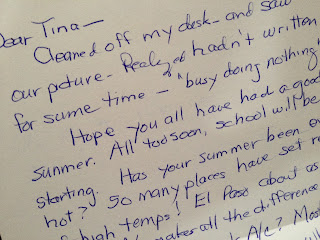 Dear Tina—
Cleaned off my desk—and saw
our picture—Realized hadn't written
for some time— "busy doing nothing"
Hope you all have had a good
summer. All too soon, school will be
starting. Has your summer been
hot? So many places have set
high temps! El Paso about as
makes all the difference
A/c?